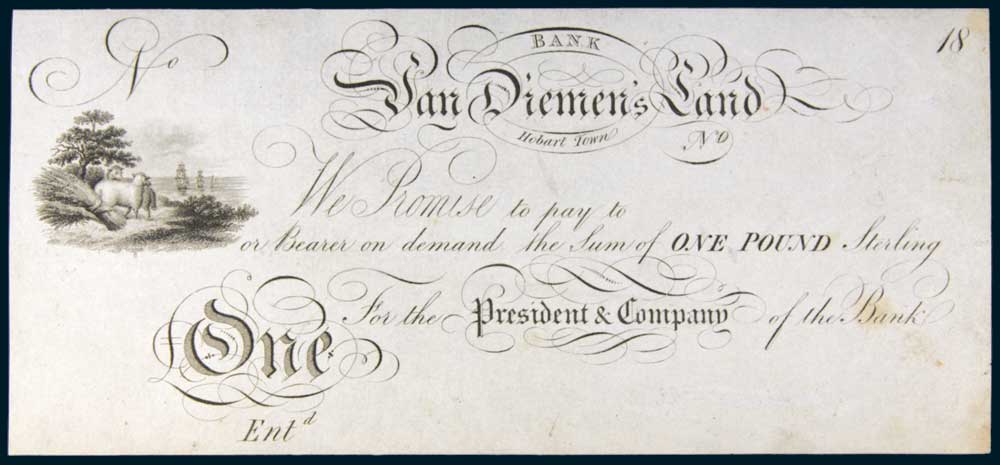 No
BANK
18
Van Diemen's Land
Hobart Town
No
We Promise to pay to
or Bearer on demand the Sum of ONE POUND Sterling
For the President & Company of the Bank
One
Ent^d